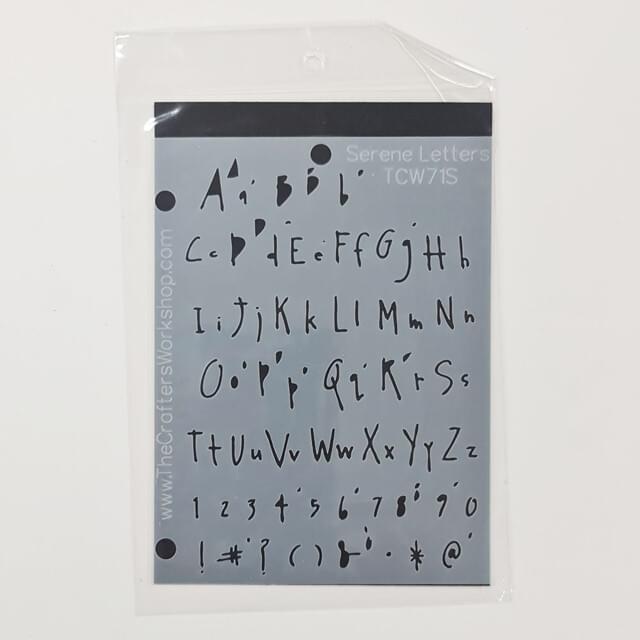 Serene Letters
TCW71S
www.TheCraftersWorkshop.com
A a B b
C c D d E e F f G g H h
I i J j K k L l M m N n
O o P p Q q R r S s
T t U u V v W w X x Y y Z z
1 2 3 4 5 6 7 8 9 0
! # ? ( ) & . * @